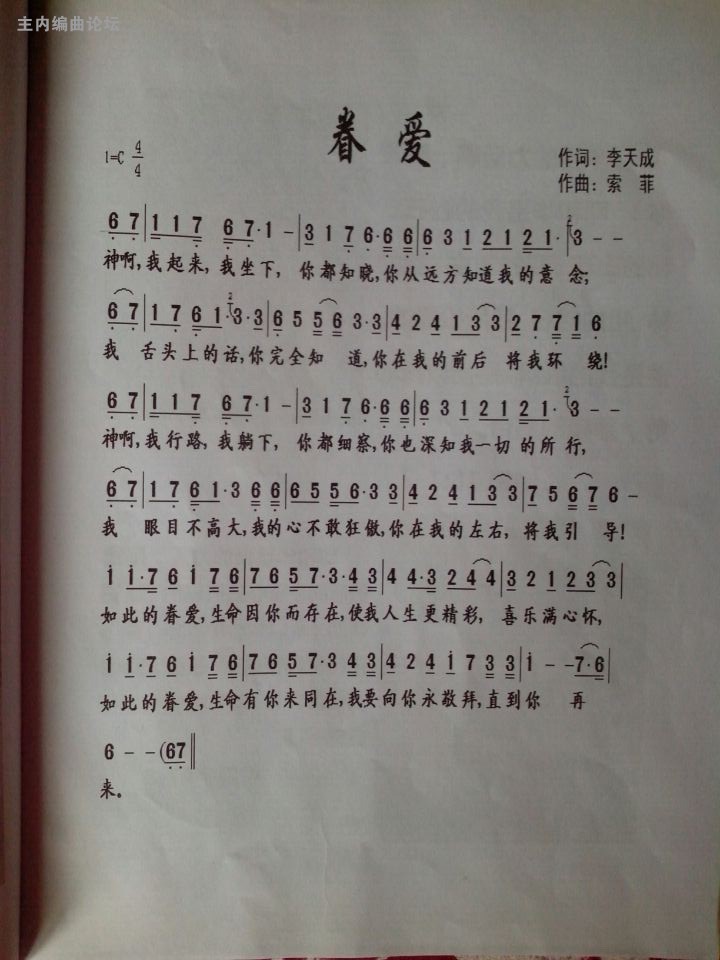 主内编曲论坛
眷爱
1=C 4/4
作词：李天成
作曲：索 菲
6 7 | 1 1 7 6 7 · 1 – | 3 1 7 6 · 6 6 | 6 3 1 2 1 2 2 1 · | 2 3 – –
神啊,我起来,我坐下, 你都知晓,你从远方知道我的意念;
6 7 | 1 7 6 1 · 2 3 · 3 | 6 5 5 6 3 · 3 | 4 2 4 1 3 3 | 2 7 7 1 6
我 舌头上的话,你完全知 道,你在我的前后 将我环 绕!
6 7 | 1 1 7 6 7 · 1 – | 3 1 7 6 · 6 6 | 6 3 1 2 1 2 2 1 · 2 3 – –
神啊,我行路,我躺下, 你都细察,你也深知我一切的所行,
6 7 | 1 7 6 1 · 3 6 6 | 6 5 5 6 · 3 3 | 4 2 4 1 3 3 | 7 5 6 7 6 –
我 眼目不高大,我的心不敢狂傲,你在我的左右, 将我引 导!
1 1 · 7 6 1 7 6 | 7 6 5 7 · 3 · 4 3 | 4 4 · 3 2 4 4 | 3 2 1 2 3 3 |
如此的眷爱,生命因你而存在,使我人生更精彩, 喜乐满心怀,
1 1 · 7 6 1 7 6 | 7 6 5 7 · 3 4 3 | 4 2 4 1 7 3 3 | 1 – – 7 · 6 |
如此的眷爱,生命有你来同在,我要向你永敬拜,直到你 再
6 – – (6 7 ‖
来。